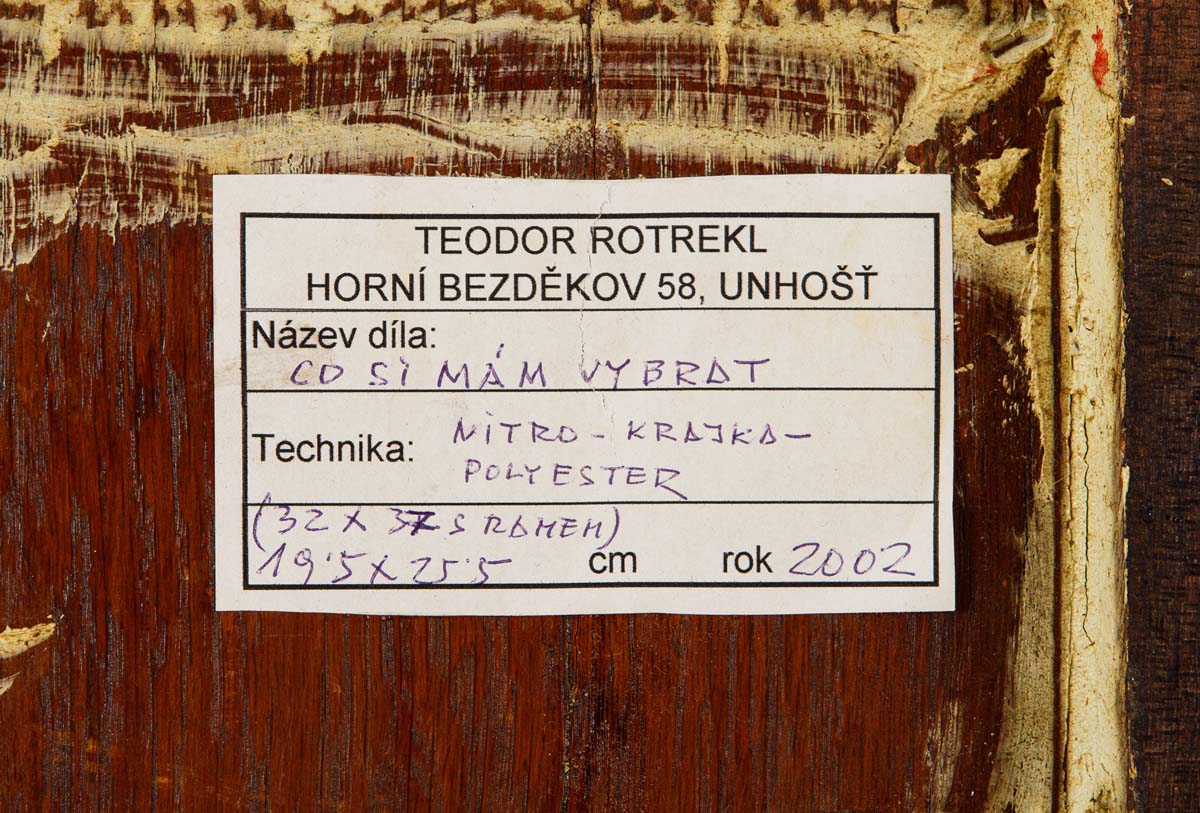 TEODOR ROTREKL
HORNÍ BEZDĚKOV 58, UNHOŠŤ
Název díla:
CO SI MÁM VYBRAT
Technika: NITRO - KRAJKA -
POLYESTER
(32 x 37 S RÁMEM)
19'5 x 25'5 cm rok 2002